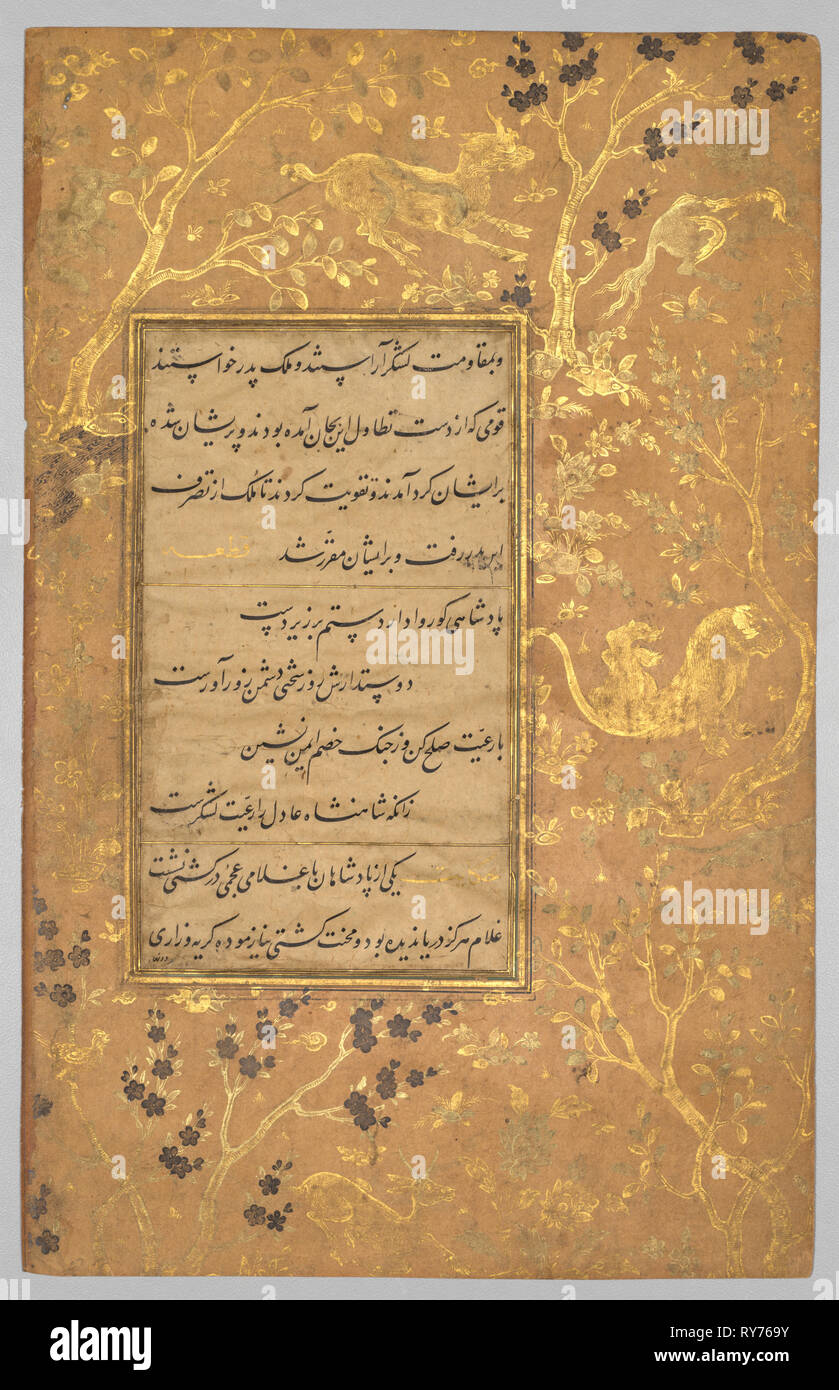 وبمقاومت لشکر آراستند و ملک پدر خواستند
قومی که از دست تطاول این بجان آمده بودند و پریشان شده
برایشان گرد آمدند و تقویت کردند تا ملک از تصرف
این بدر رفت و برایشان مقرّر شد قطعه
پادشاهی کو روا دارد ستم بر زیردست
دوستدارش روز سختی دشمن زورآورست
با رعیّت صلح کن وز جنگ خصم ایمن نشین
زانکه شاهنشاه عادل را رعیّت لشکرست
حکایت یکی از پادشاهان با غلامی عجمی در کشتی نشست
غلام هرگز دریا ندیده بود و محنت کشتی نیازموده گریه و زاری
alamy
Image ID: RY769Y
www.alamy.com